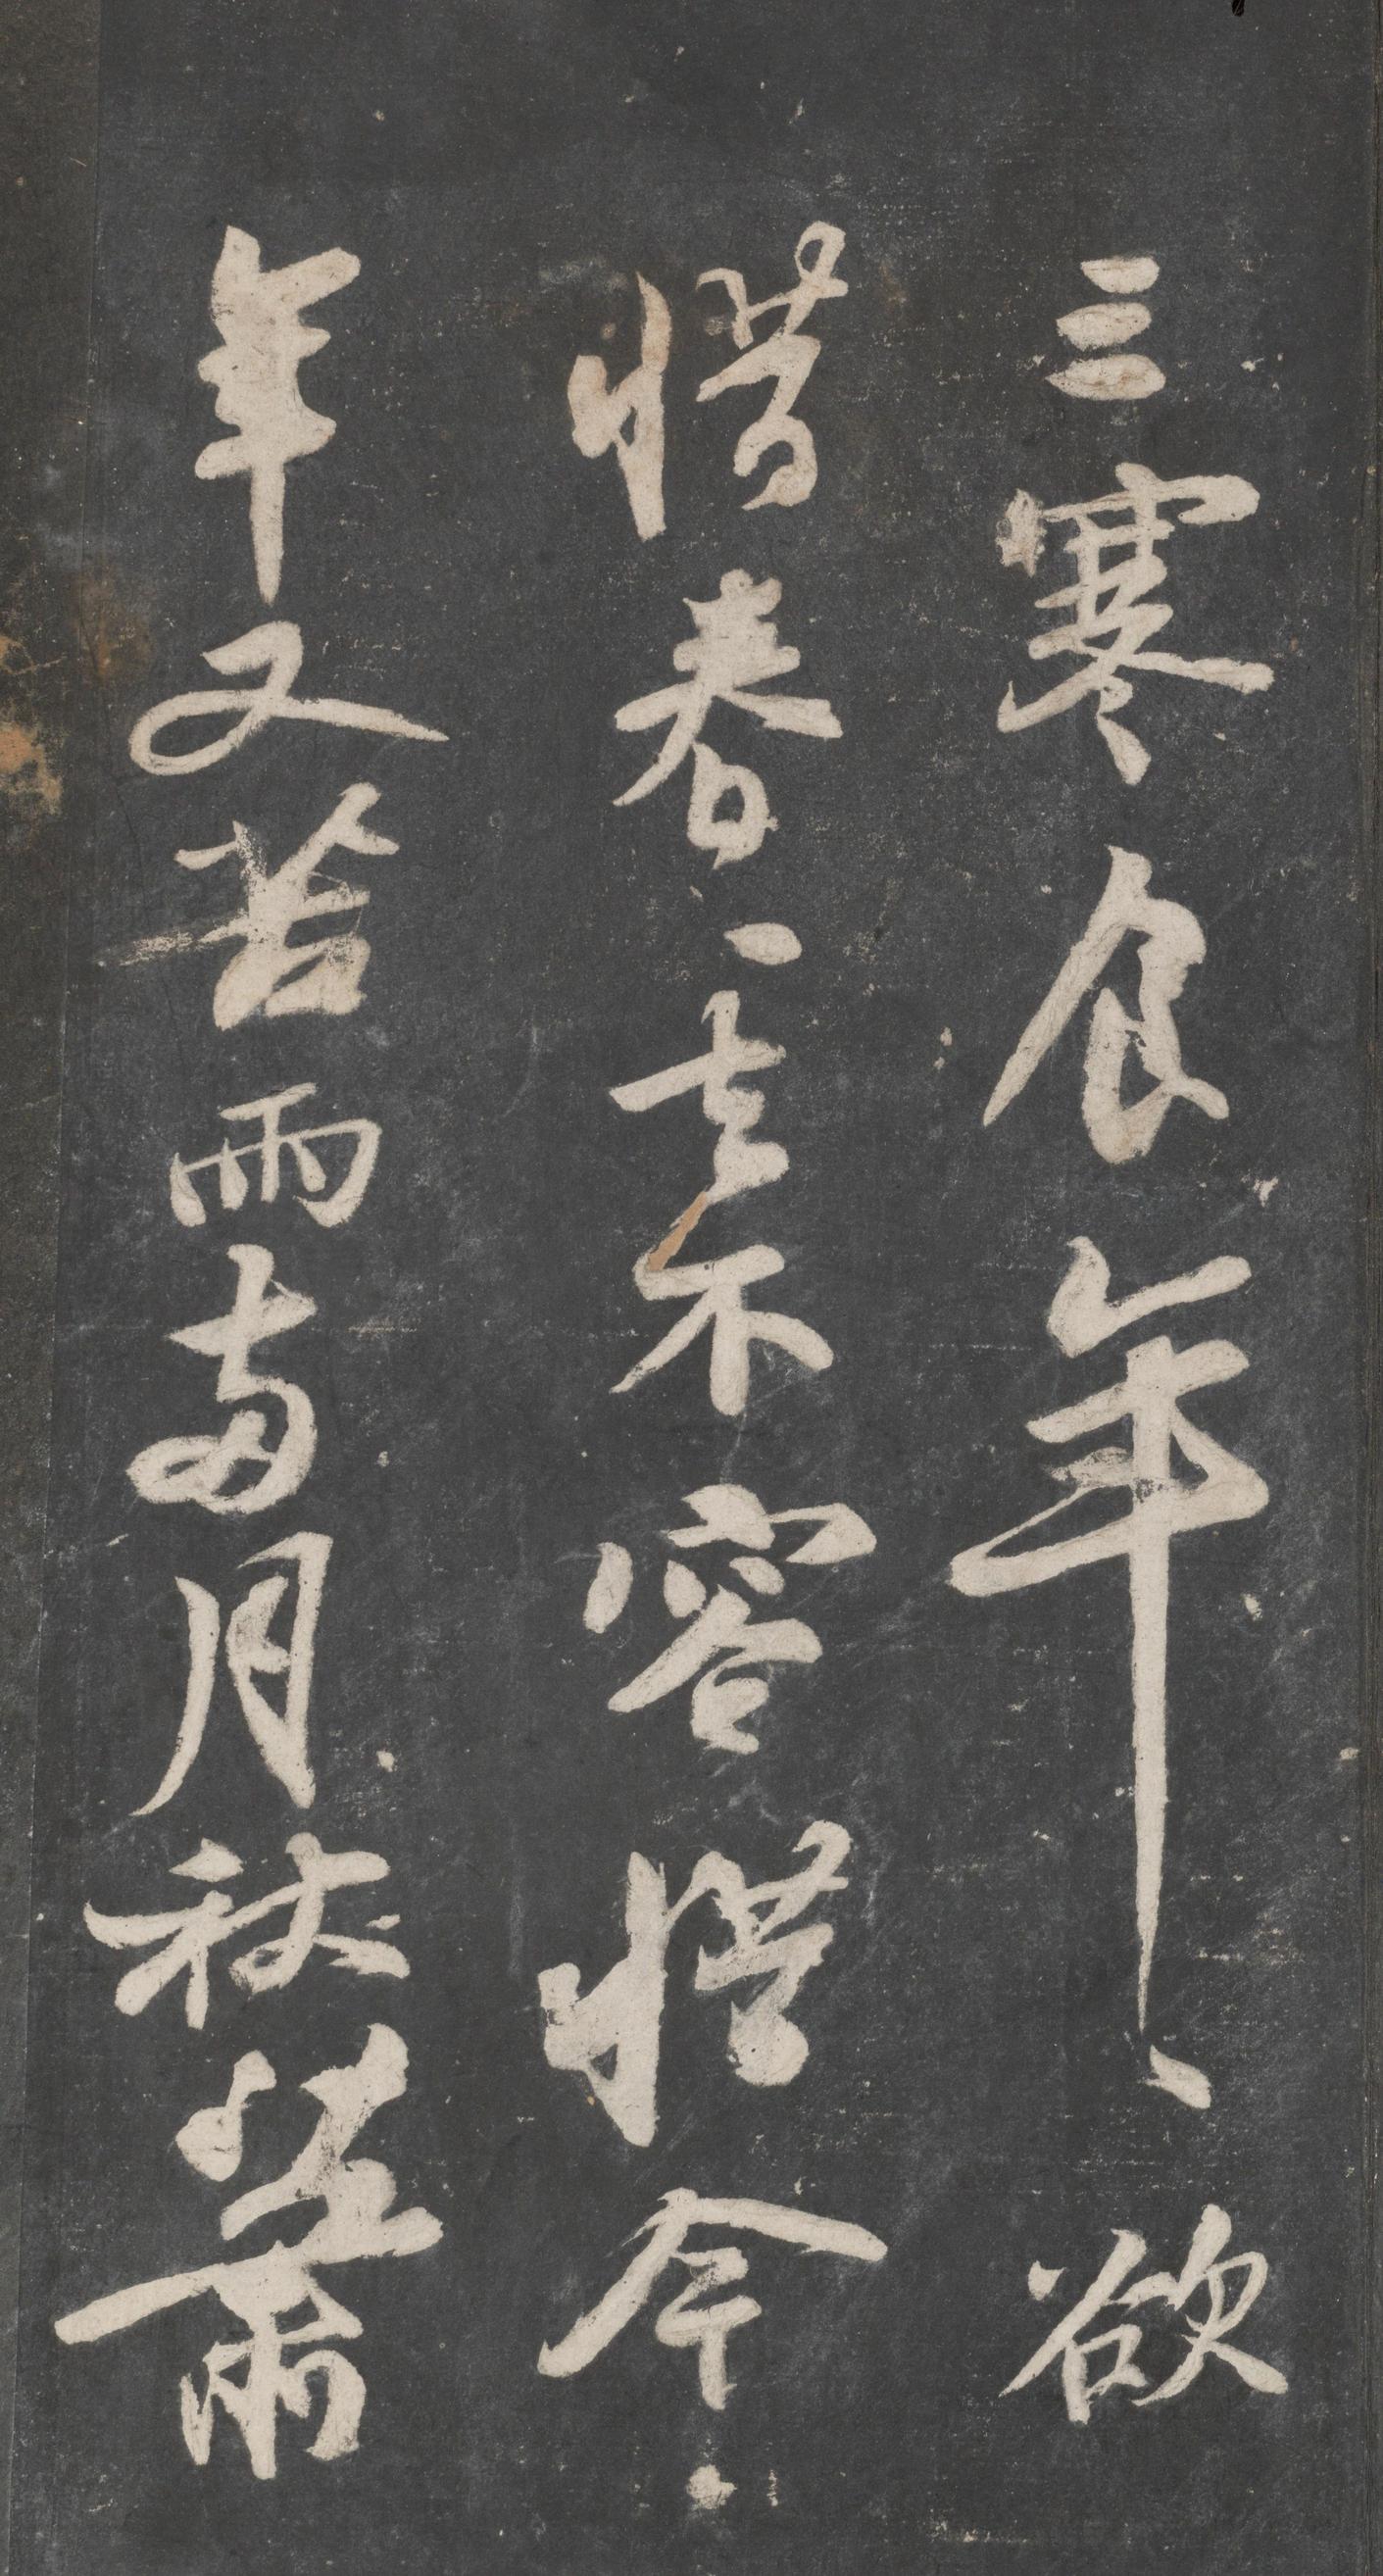 三寒食年〻欲
惜春〻去不容惜今
年又苦雨兩月秋蕭